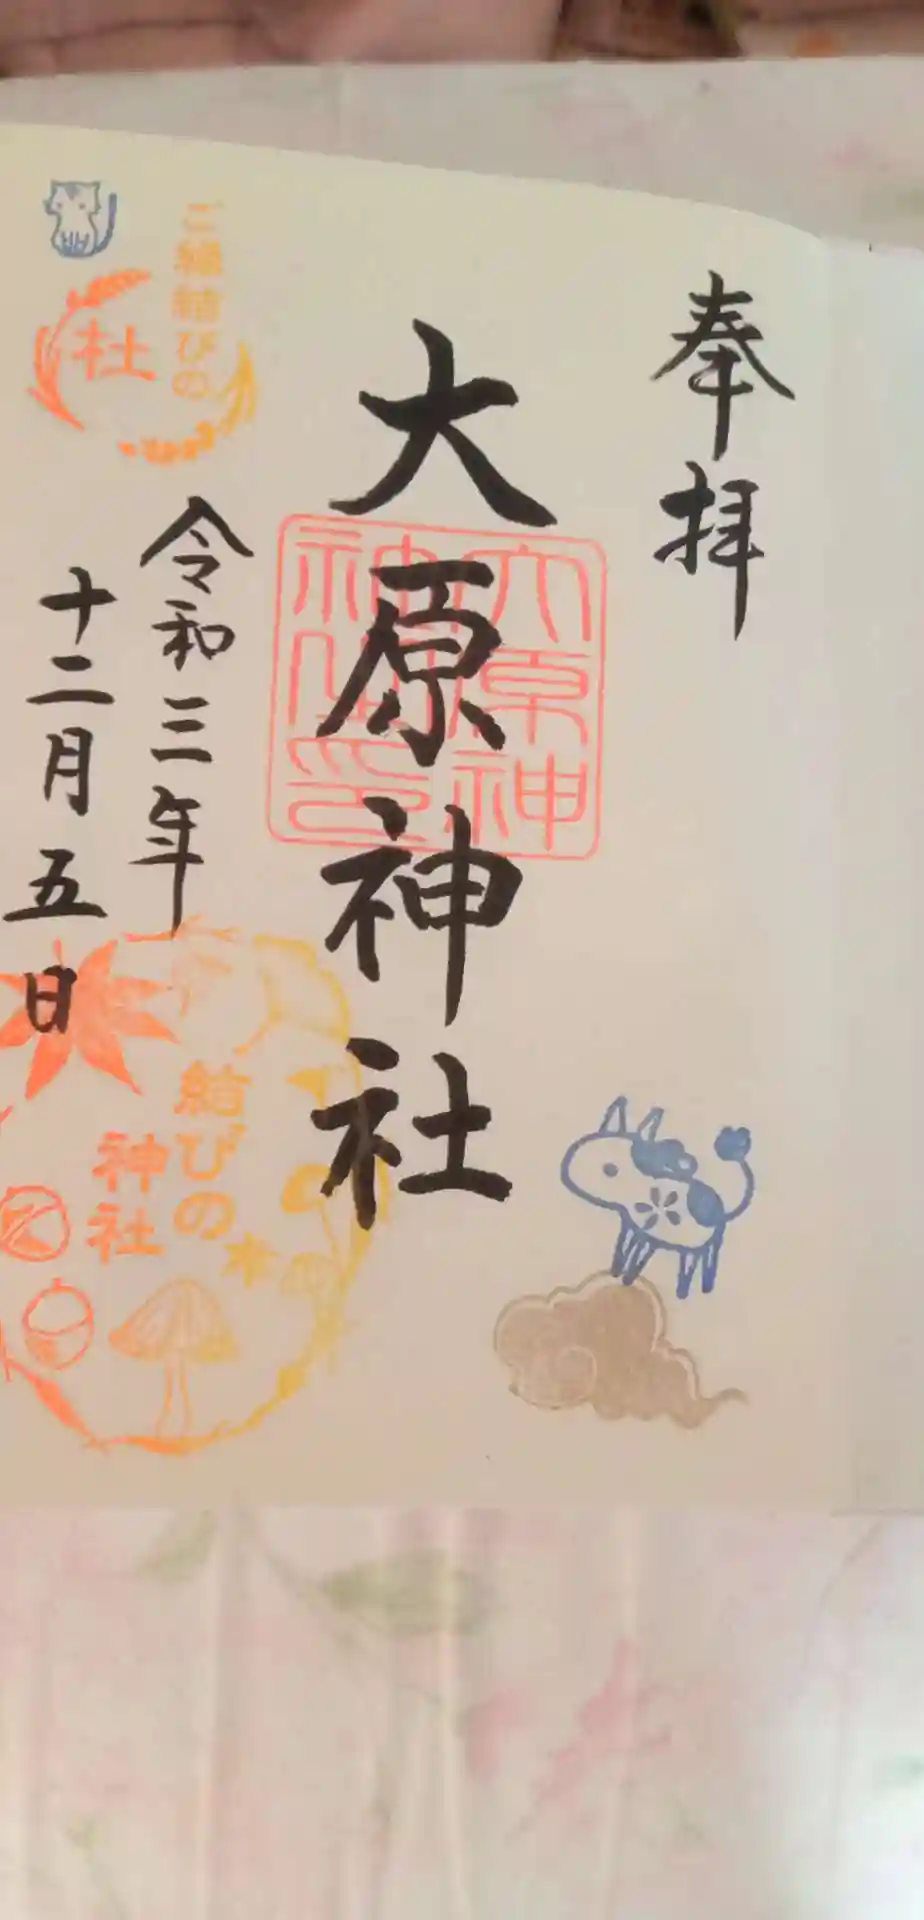 奉拝
大原神社
大原神
神社印
令和三年
十二月五日
ご縁結びの
杜
結びの
神社